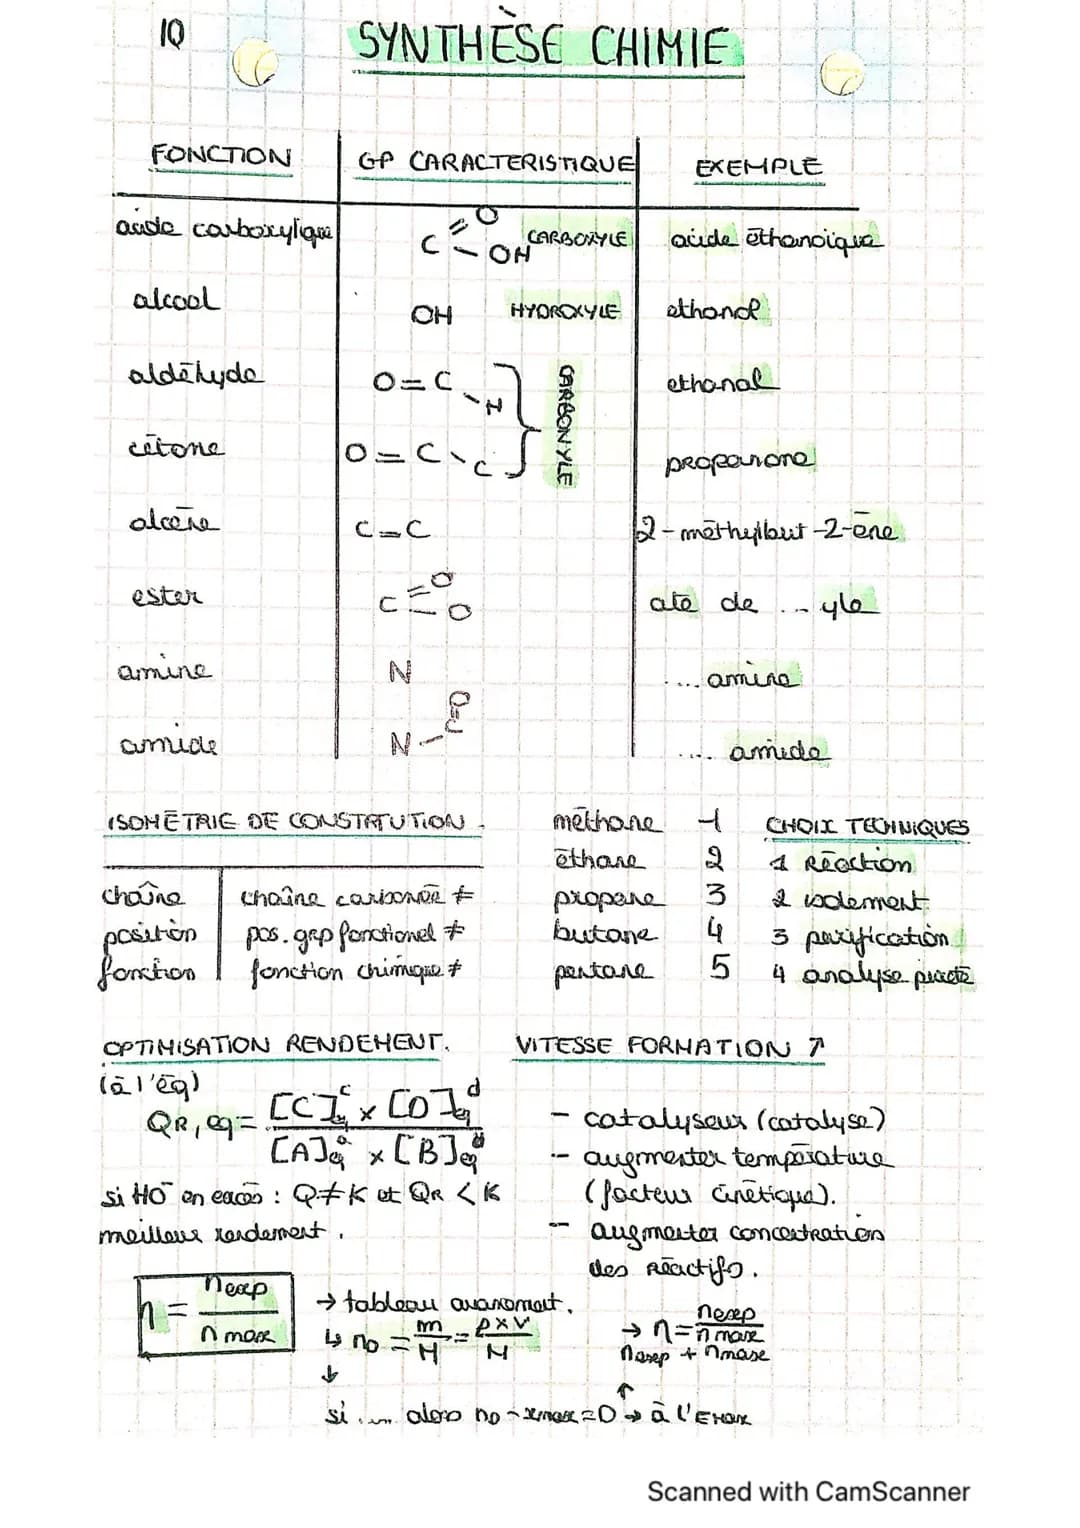 1Q
SYNTHÈSE CHIMIE
FONCTION GP CARACTERISTIQUE EXEMPLE
acide carboxylique C =O - OH CARBOXYLE acide éthanoïque
alcool OH HYDROXYLE ethanol
aldéhyde O=C-H ethanal
CARBONYLE
cétone O=C-C propanone
alcène C=C 2-méthylbut-2-ène
ester C =O - O ate de ... yle
amine N ... amine
amide N-C=O .... amide
ISOMÉTRIE DE CONSTITUTION.
chaîne chaîne carbonée ≠
position pos. grp fonctionel ≠
fonction fonction chimique ≠
méthane 1
éthane 2
propane 3
butane 4
pentane 5
CHOIX TECHNIQUES
1 Réaction
2 isolement
3 purification
4 analyse pureté
OPTIMISATION RENDEMENT.
(à l'éq)
QR,eq = [C]eq^c x [D]eq^d / [A]eq^a x [B]eq^b
si HO⁻ en excès : Q≠K et QR < K
meilleur rendement.
VITESSE FORMATION ↗
- catalyseur (catalyse)
- augmenter température
(facteur cinétique).
- augmenter concentration
des réactifs.
η = nexp / n max
→ tableau avancement.
↳ no = m/M = ρxV/M
↓
si ... alors no - xmax = 0 → à l'Emax
→ η = nexp / n max
nexp + nmax
↑
Scanned with CamScanner